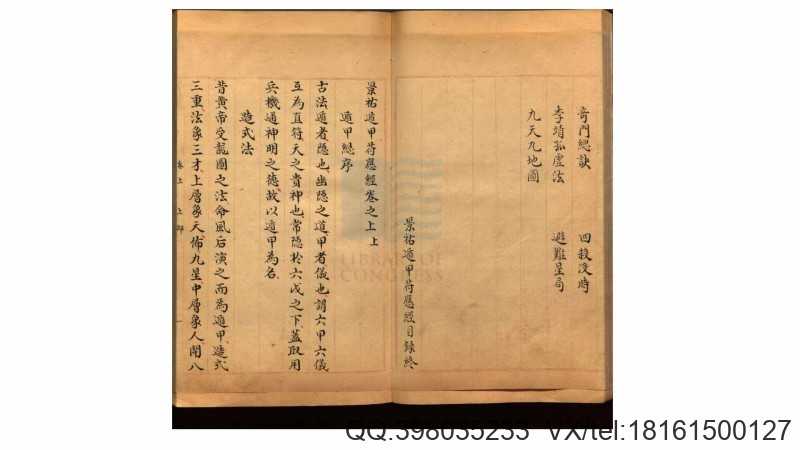 奇門總訣　四殺沒時
李靖孤虛法　避難星局
九天九地圖
景祐遁甲符應經目錄終
景祐遁甲符應經卷之上上
遁甲總序
古法遁者隱也幽隱之道甲者儀也謂六甲六儀
互為直符天之貴神也常隱於六戊之下蓋取用
兵機通神明之德故以遁甲為名
造式法
昔黃帝受龍圖之法命風后演之而為遁甲造式
三重法象三才上層象天佈九星中層象人開八
卷上　上部
一
LIBRARY OF CONGRESS
QQ:398035233 VX/tel:18161500127